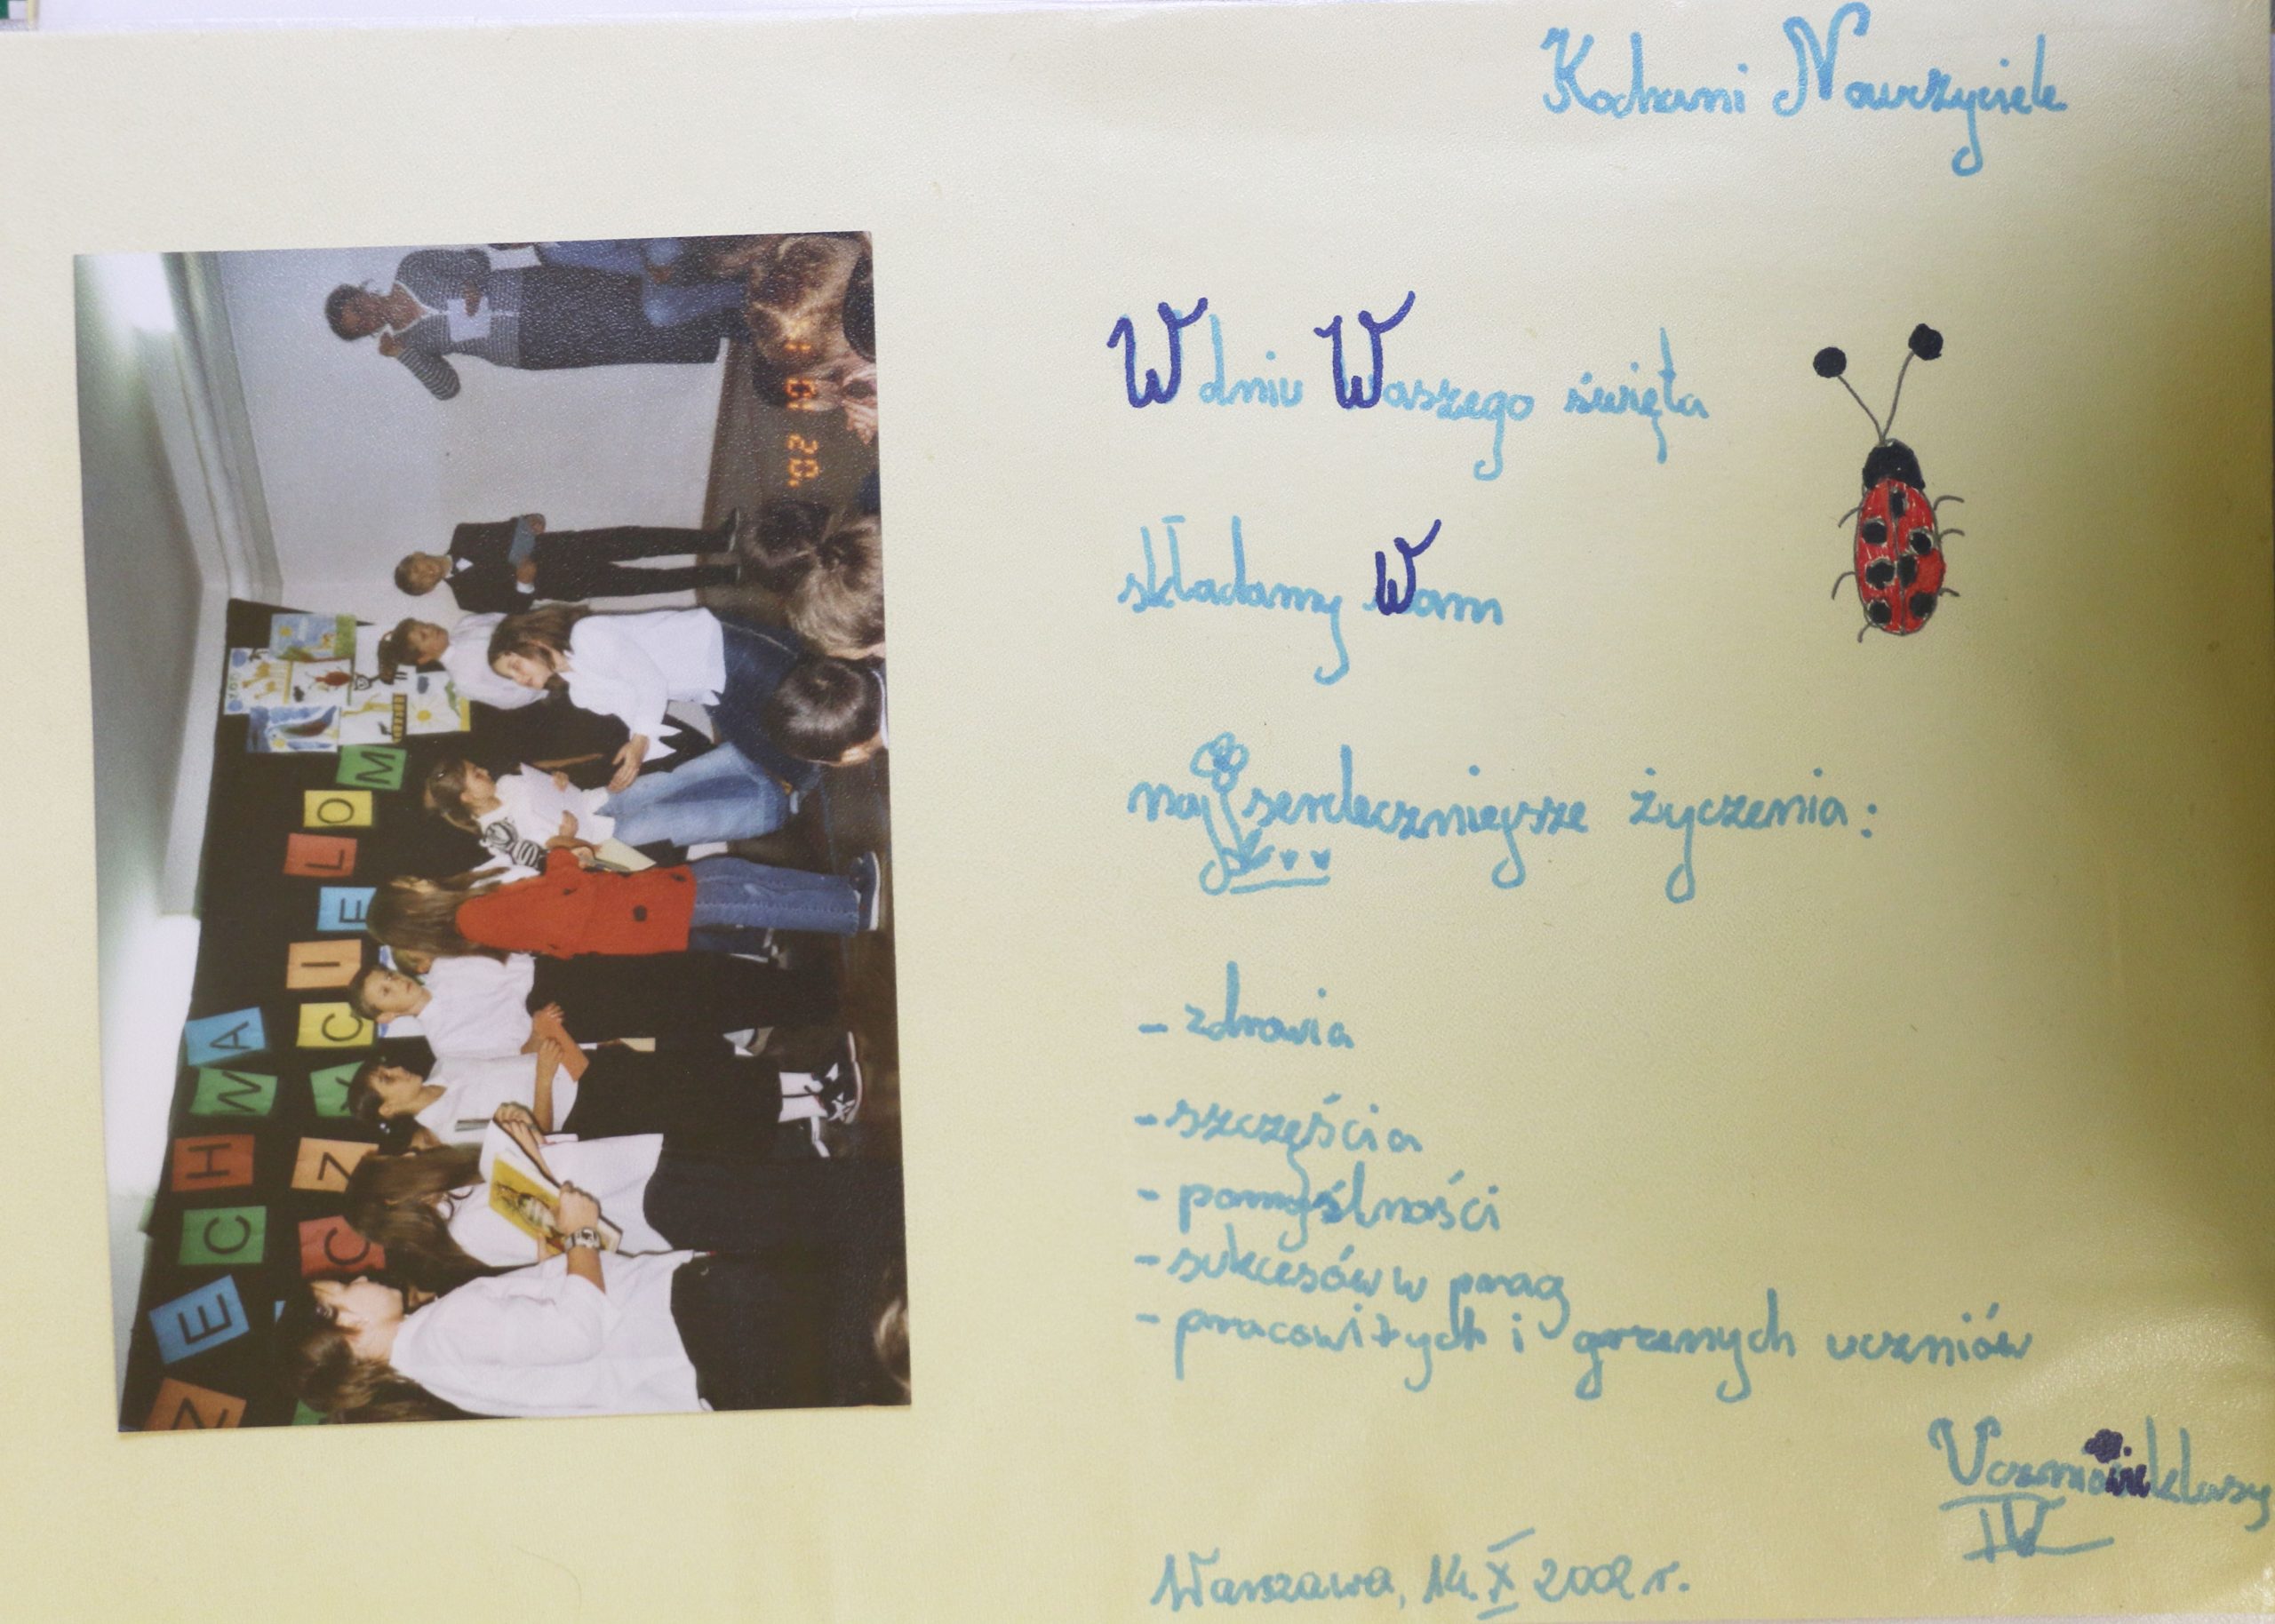 Kochani Nauczyciele
W dniu Waszego święta
składamy Wam
najserdeczniejsze życzenia:
- zdrowia
- szczęścia
- pomyślności
- sukcesów w pracy
- pracowitych i grzecznych uczniów
Uczniowie klasy
IV
Warszawa, 14. X 2002 r.
ZECHWA
CZYCIELOM